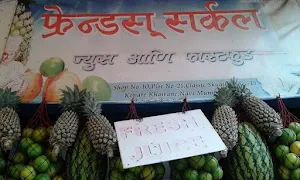 फ्रेन्डस् सर्कल
ज्युस आणि फास्टफुड
Shop No 10 Plot No 25 Classic
Kopare Khairane, Navi Mum
FRESH
JUICE